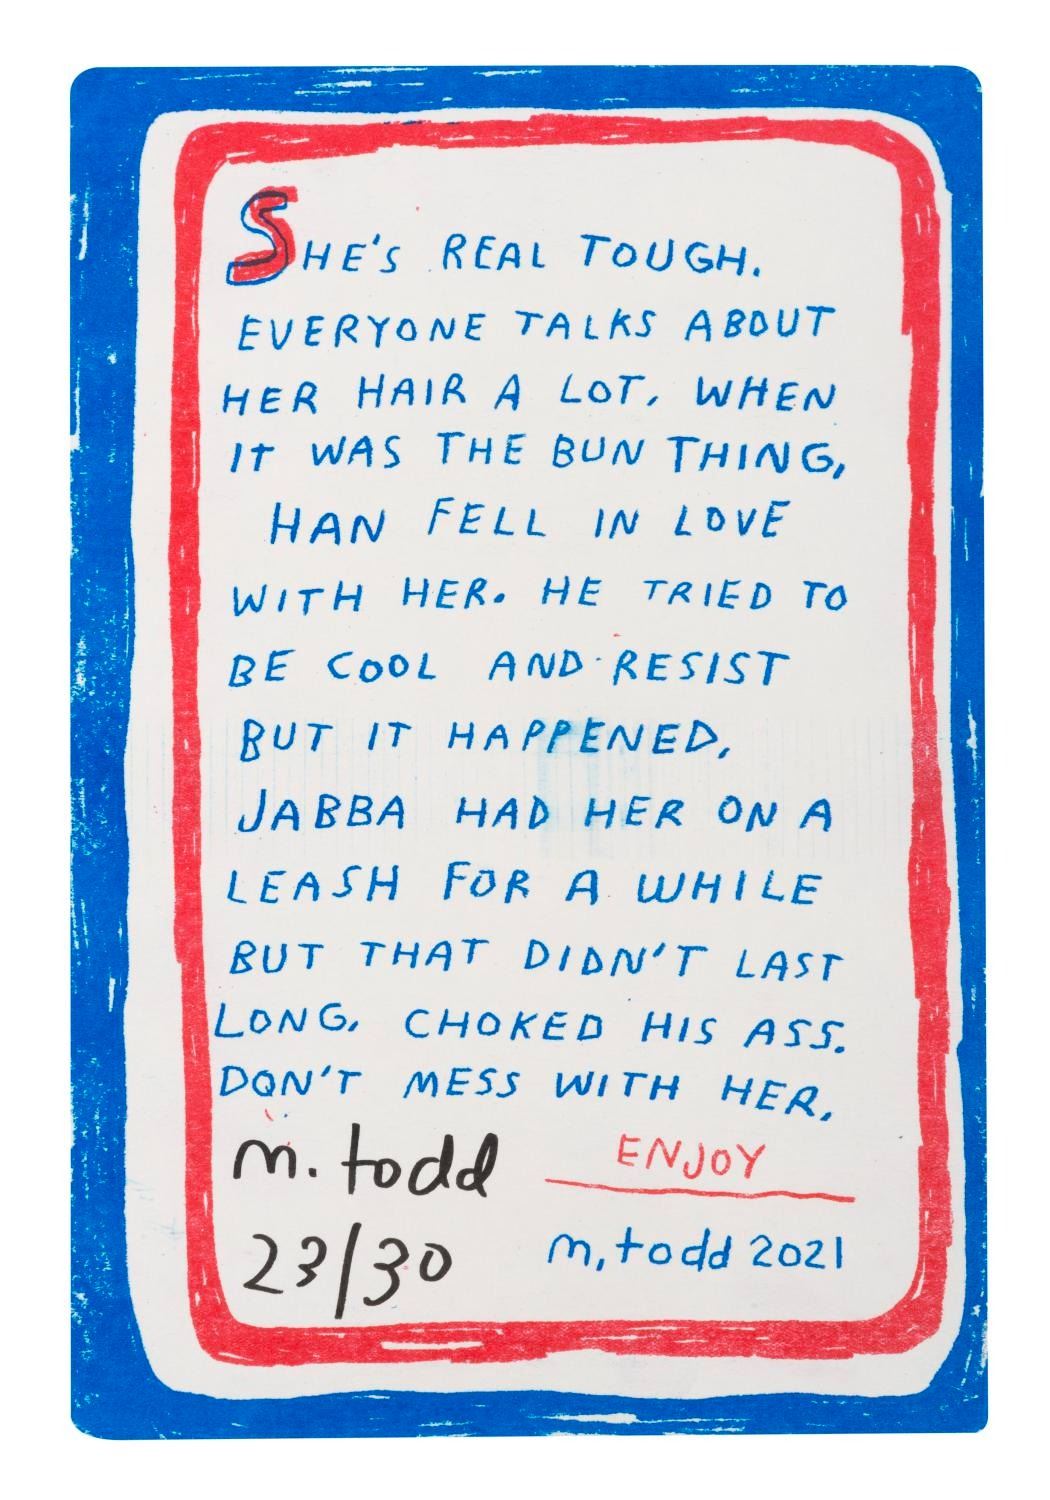 SHE'S REAL TOUGH.
EVERYONE TALKS ABOUT
HER HAIR A LOT. WHEN
IT WAS THE BUN THING,
HAN FELL IN LOVE
WITH HER. HE TRIED TO
BE COOL AND RESIST
BUT IT HAPPENED.
JABBA HAD HER ON A
LEASH FOR A WHILE
BUT THAT DIDN'T LAST
LONG. CHOKED HIS ASS.
DON'T MESS WITH HER.
m. todd ENJOY
23/30 m. todd 2021